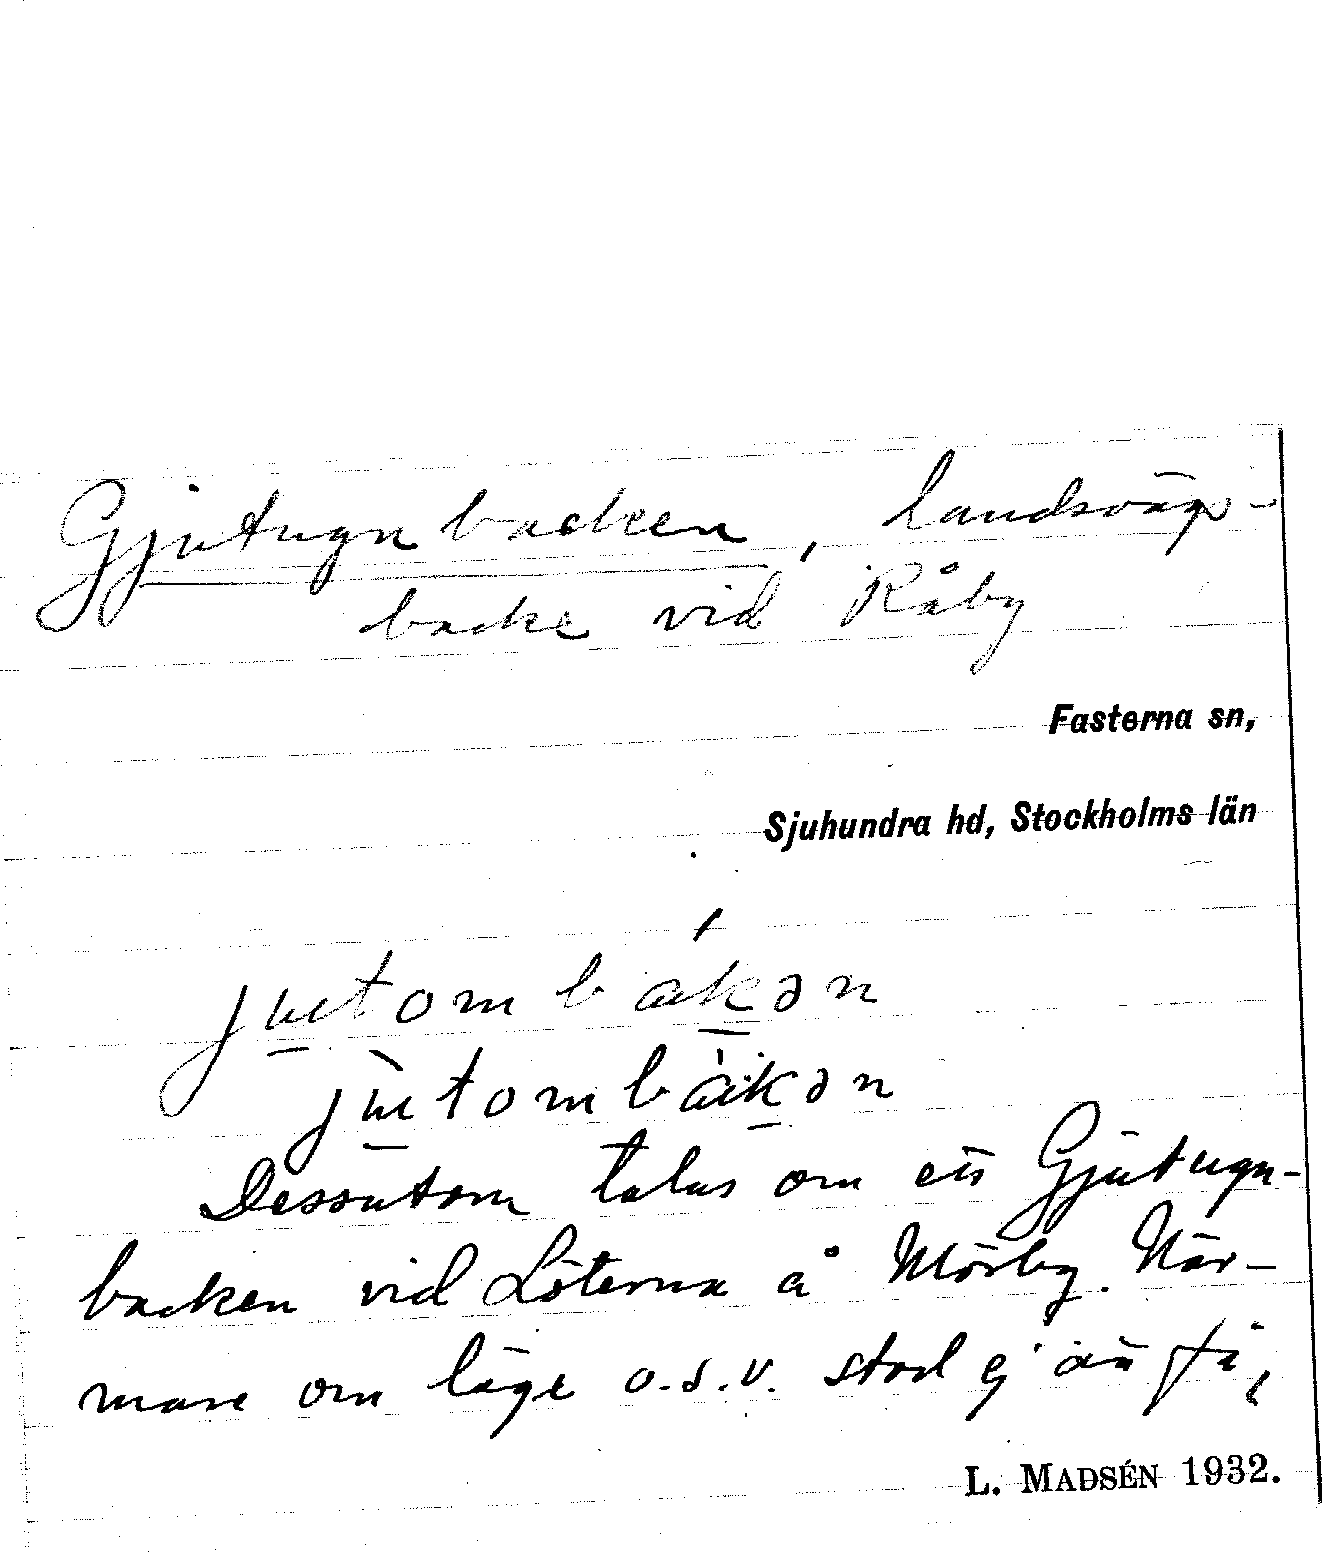 Gjutugnbacken, landsvägs-
backe vid Råby
Fasterna sn,
Sjuhundra hd, Stockholms län
Dessutom talas om en Gjutugn-
backen vid Löterna å Mörby. När-
mare om läge o.s.v. stod ej att få,
L. MADSÉN 1932.